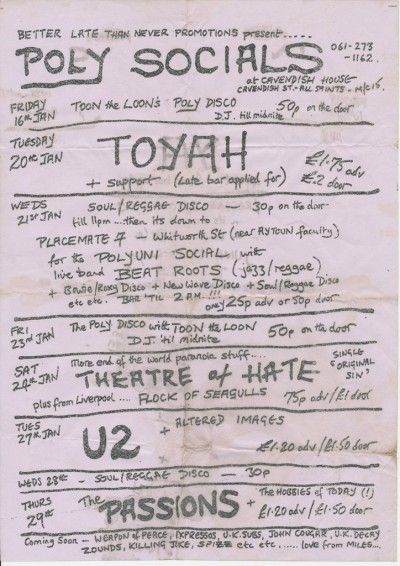 BETTER LATE THAN NEVER PROMOTIONS present.....
POLY SOCIALS
061-273
-1162.
at CAVENDISH HOUSE
CAVENDISH ST.- ALL SAINTS - M/C 15.
FRIDAY
16th JAN
TOON the LOON'S POLY DISCO
D.J. till midnite
50p on the door
TUESDAY
20th JAN
TOYAH
+ support (Late bar applied for)
£1.75 adv
£2 door
WEDS
21st JAN
SOUL/REGGAE DISCO - 30p on the door
till 11pm ... then its down to
PLACEMATE 7 - Whitworth St (near AYTOUN faculty)
for the POLYUNI SOCIAL with
live band BEAT ROOTS (jazz/reggae)
+ Bowie/Roxy Disco + New Wave Disco + Soul/Reggae Disco
etc etc. BAR 'TIL 2 A.M.!!!
ONLY 25p adv or 50p door.
FRI
23rd JAN
The POLY DISCO with TOON the LOON
D.J. 'til midnite
50p on the door
SAT
24th JAN
More end of the world paranoia stuff....
THEATRE of HATE
SINGLE
'ORIGINAL
SIN'
plus from Liverpool .... FLOCK OF SEAGULLS
75p adv / £1 door
TUES
27th JAN
U2
+ ALTERED IMAGES
£1.20 adv / £1.50 door
WEDS 28th - SOUL/REGGAE DISCO - 30p
THURS
29th
The PASSIONS
+ The HOBBIES OF TODAY (!)
£1.20 adv / £1.50 door
Coming Soon - WEAPON of PEACE, EXPRESSOS, U.K. SUBS, JOHN COUGAR, U.K. DECAY
ZOUNDS, KILLING JOKE, SPIZZ etc etc ...... love from MILES....